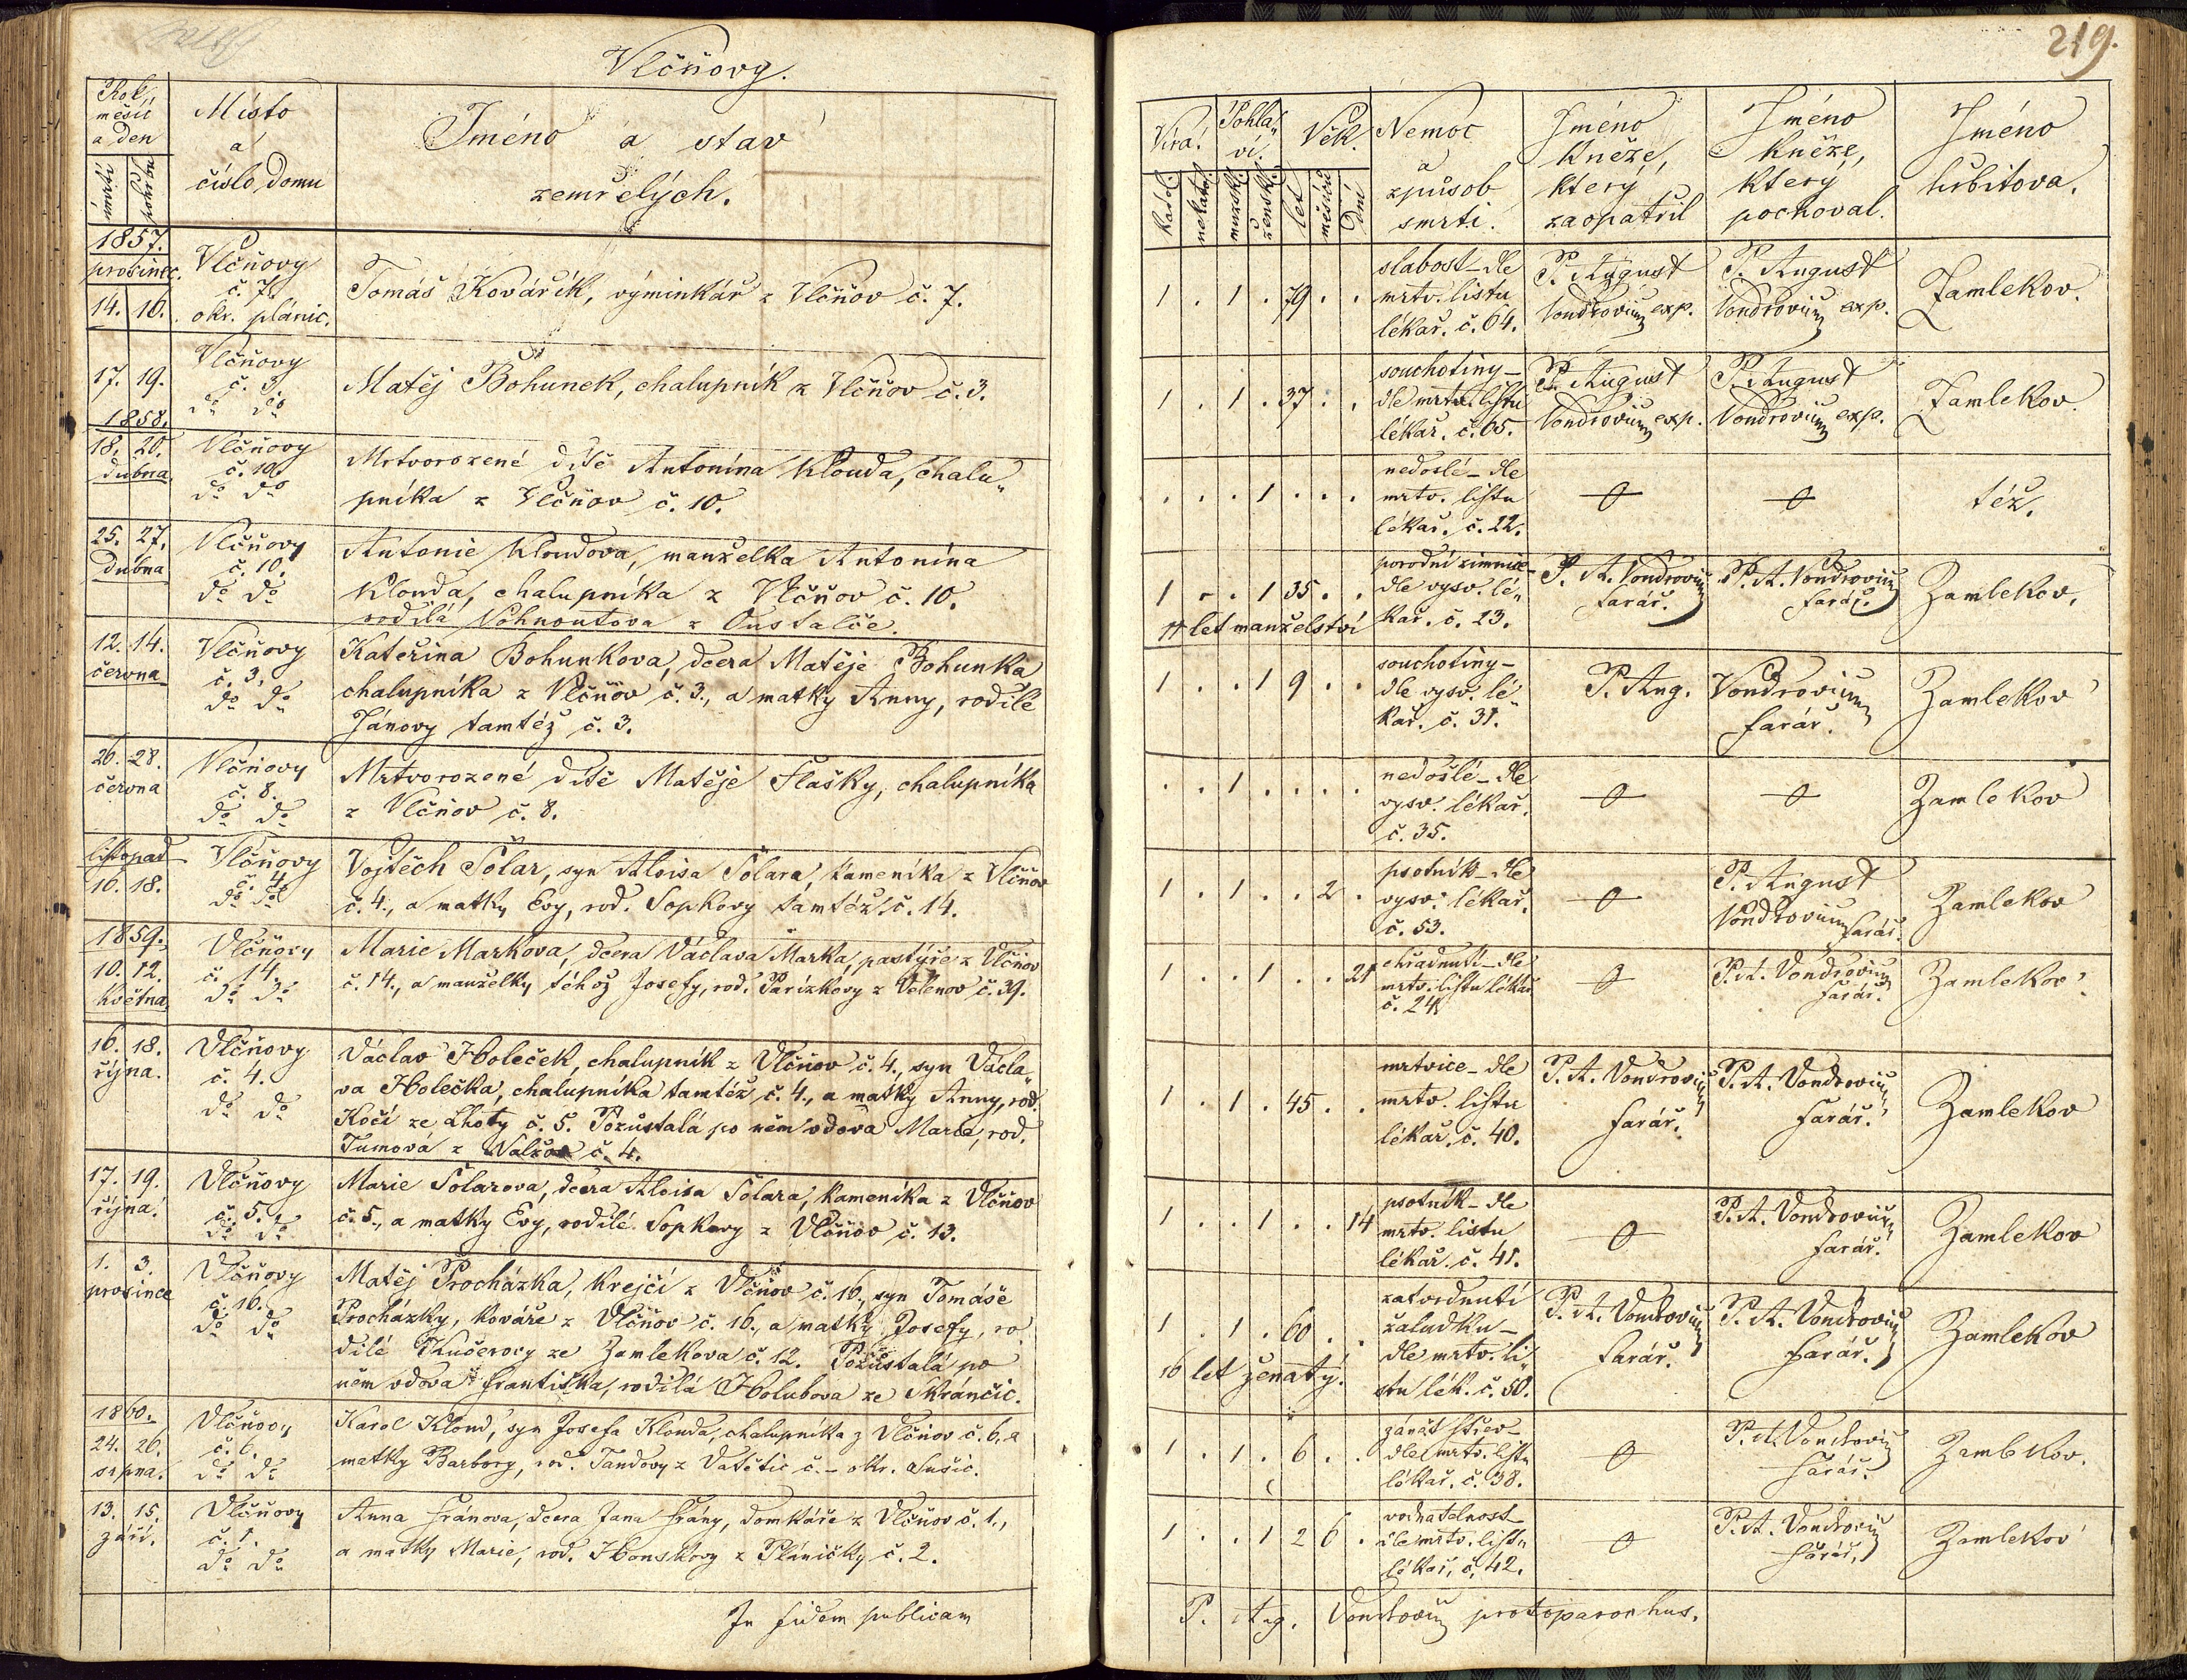 Vlčňovy.
219.
Rok,
měsíc
a den
úmrtí
pohřbu
Místo
a
číslo domu
Jméno a stav
zemřelých.
Víra.
katol.
nekatol.
Pohla„
ví.
mužské.
ženské.
Věk.
let
měsíců
dní
Nemoc
a
způsob
smrti.
Jméno
kněze,
který
zaopatřil
Jméno
kněze,
který
pochoval.
Jméno
hřbitova.
1857.
prosinec.
14. 16.
Vlčňovy
č. 7.
okr. plánic.
Tomáš Kovářík, výminkář z Vlčňov č. 7.
1 . 1 . 79 . .
slabost – dle
mrtv. listu
lékař. č. 64.
P. August
Vondrovium exp.
P. August
Vondrovium exp.
Zamlekov.
17. 19.
Vlčňovy
č. 3.
do do
Matěj Bohunek, chalupník z Vlčňov č. 3.
1 . 1 . 37 . .
souchotiny –
dle mrtv. listu
lékař. č. 65.
P. August
Vondrovium exp.
P. August
Vondrovium exp.
Zamlekov.
1858.
18. 20.
dubna.
Vlčňovy
č. 10.
do do
Mrtvorozené dítě Antonína Klouda, chalu„
pníka z Vlčňov č. 10.
. . . 1 . . .
nedoslé – dle
mrtv. listu
lékař. č. 22.
téz.
25. 27.
dubna
Vlčňovy
č. 10.
do do
Antonie Kloudova, manželka Antonína
Klouda, chalupníka z Vlčňov č. 10.
rodilá Vohnoutova z Oustalče.
1 . . 1 35 . .
11 let manželství
porodní zimnice –
dle vysv. lé„
kař. č. 23.
P. A. Vondrovium
farář.
P. A. Vondrovium
farář.
Zamlekov.
12. 14.
června
Vlčňovy
č. 3.
do do
Kateřina Bohunkova, dcera Matěje Bohunka
chalupníka z Vlčňov č. 3., a matky Anny, rodilé
Jánovy tamtéž č. 3.
1 . . 1 9 . .
souchotiny –
dle vysv. lé„
kař. č. 31.
P. Aug. Vondrovium
farář.
Zamlekov
26. 28.
června
Vlčňovy
č. 8.
do do
Mrtvorozené dítě Matěje Flašky, chalupníka
z Vlčňov č. 8.
. . 1 . . . .
nedošlé – dle
vysv. lékař.
č. 35.
Zamlekov
listopad
10. 18.
Vlčňovy
č. 4.
do do
Vojtěch Šolar, syn Aloisa Šolara, kameníka z Vlčňov
č. 4., a matky Evy, rod. Sopkovy tamtéž č. 14.
1 . 1 . . 2 .
psotník – dle
vysv. lékař.
č. 53.
P. August
Vondrovium farář.
Zamlekov
1859.
10. 12.
května
Vlčňovy
č. 14.
do do
Marie Markova, dcera Václava Marka, pastýře z Vlčňov
č. 14., a manželky téhož Josefy, rod. Pařízkovy z Velenov č. 39.
1 . . 1 . . 21
chřadnutí – dle
mrtv. listu lékař.
č. 24.
P. A. Vondrovium
farář.
Zamlekov
16. 18.
října.
Vlčňovy
č. 4.
do do
Václav Holeček, chalupník z Vlčňov č. 4., syn Václa„
va Holečka, chalupníka tamtéž č. 4., a matky Anny, rod.
Kočí ze Lhoty č. 5. Pozůstalá po něm vdova Marie, rod.
Tumová z Nalžov č. 4.
1 . 1 . 45 . .
mrtvice – dle
mrtv. listu
lékař. č. 40.
P. A. Vondrovium
farář.
P. A. Vondrovium
farář.
Zamlekov
17. 19.
října.
Vlčňovy
č. 5.
do do
Marie Šolarova, dcera Aloisa Šolara, kameníka z Vlčňov
č. 5., a matky Evy, rodilé Sopkovy z Vlčňov č. 13.
1 . . 1 . . 14
psotník – dle
mrtv. listu
lékař. č. 41.
P. A. Vondrovium
farář.
Zamlekov
1. 3.
prosince
Vlčňovy
č. 16.
do do
Matěj Procházka, krejčí z Vlčňov č. 16., syn Tomáše
Procházky, kováře z Vlčňov č. 16., a matky Josefy, ro
dilé Kučerovy ze Zamlekova č. 12. Pozůstalá po
něm vdova Františka, rodilá Holubova ze Skránčic.
1 . 1 . 60 . .
16 let ženatý.
zatvrdnutí
žaludku –
dle mrtv. li„
stu lék. č. 50.
P. A. Vondrovium
farář.
P. A. Vondrovium
farář.
Zamlekov
1860.
24. 26.
srpna.
Vlčňovy
č. 6.
do do
Karel Kloud, syn Josefa Klouda, chalupníka z Vlčňov č. 6. a
matky Barbory, rod. Tandovy z Vatětic č. – okr. Sušic.
1 . 1 . 6 . .
zánět střev –
dle mrtv. listu
lékař. č. 38.
P. A. Vondrovium
farář.
Zamlekov.
13. 15.
září.
Vlčňovy
č. 1.
do do
Anna Fránova, dcera Jana Frány, domkáře z Vlčňov č. 1.,
a matky Marie, rod. Honskovy z Pláničky č. 2.
1 . . 1 2 6 .
vodnatelnost
dle mrtv. listu
lékař. č. 42.
P. A. Vondrovium
farář.
Zamlekov
In fidem publicam
P. Aug. Vondrovium protoparochus.